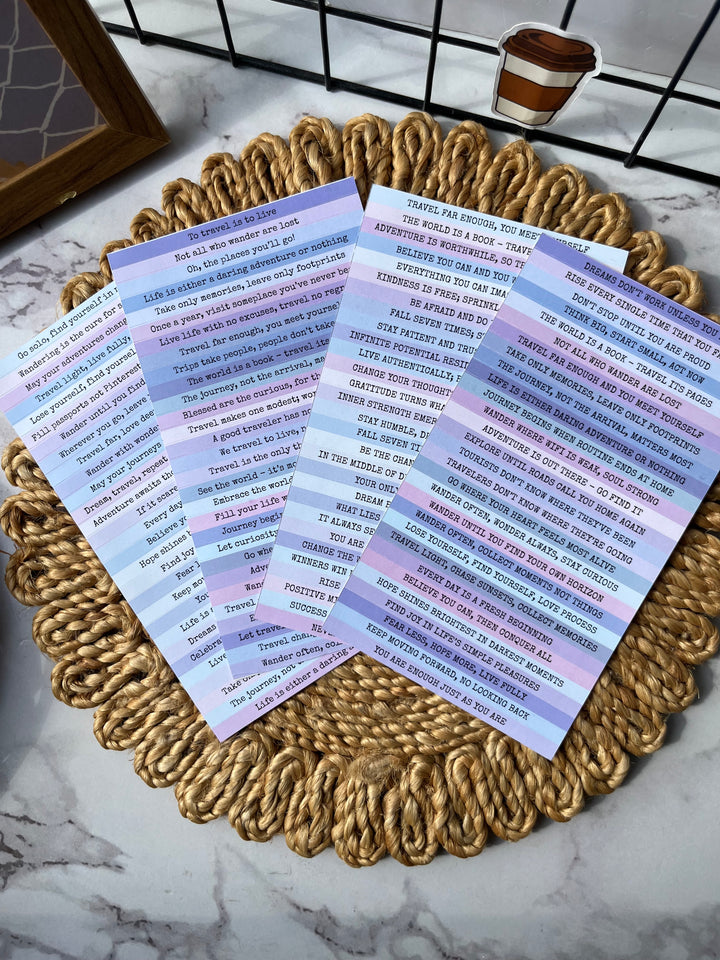 Go solo, find yourself in
Wandering is the cure for
May your adventures chang
Travel light, live fully,
Lose yourself, find yourself
Fill passports not Pinteres
Wander until you find
Wherever you go, leave
Travel far, love dee
Wander with wonder
May your journey
Dream, travel, repeat
Adventure awaits th
If it scar
Every day
Believe yo
Hope shines
Find joy
Fear
Keep mov
You
Life is
Dreams
Celebra
Live
Take on
The journey, not
Life is either a daring
To travel is to live
Not all who wander are lost
Oh, the places you'll go!
Life is either a daring adventure or nothing
Take only memories, leave only footprints
Once a year, visit someplace you've never be
Live life with no excuses, travel no reg
Travel far enough, you meet yourself
Trips take people, people don't take
The world is a book - travel it
The journey, not the arrival, ma
Blessed are the curious, for th
Travel makes one modest;
A good traveler has no
We travel to live, n
Travel is the only th
See the world - it's mo
Embrace the world
Fill your life w
Journey begi
Let curiosity
Go wh
Adv
Wand
Travel
E
Let travel
Travel cha
Wander often, co
TRAVEL FAR ENOUGH, YOU MEET YOURSELF
THE WORLD IS A BOOK - TRAVE
ADVENTURE IS WORTHWHILE, SO T
BELIEVE YOU CAN AND YOU
EVERYTHING YOU CAN IMA
KINDNESS IS FREE; SPRINK
BE AFRAID AND DO
FALL SEVEN TIMES; S
STAY PATIENT AND TRUS
INFINITE POTENTIAL RESI
LIVE AUTHENTICALLY,
CHANGE YOUR THOUGHT
GRATITUDE TURNS WHA
INNER STRENGTH EMER
STAY HUMBLE,
FALL SEVEN TI
BE THE CHAN
IN THE MIDDLE OF D
YOUR ONLY
DREAM
WHAT LIES
IT ALWAYS SE
YOU ARE
CHANGE THE W
WINNERS WIN
RISE
POSITIVE MI
SUCCESS
NEVE
DREAMS DON'T WORK UNLESS YOU
RISE EVERY SINGLE TIME THAT YOU F
DON'T STOP UNTIL YOU ARE PROUD
THINK BIG, START SMALL, ACT NOW
THE WORLD IS A BOOK - TRAVEL ITS PAGES
NOT ALL WHO WANDER ARE LOST
TRAVEL FAR ENOUGH AND YOU MEET YOURSELF
TAKE ONLY MEMORIES, LEAVE ONLY FOOTPRINTS
THE JOURNEY, NOT THE ARRIVAL, MATTERS MOST
LIFE IS EITHER DARING ADVENTURE OR NOTHING
JOURNEY BEGINS WHEN ROUTINE ENDS AT HOME
WANDER WHERE WIFI IS WEAK, SOUL STRONG
ADVENTURE IS OUT THERE - GO FIND IT
EXPLORE UNTIL ROADS CALL YOU HOME AGAIN
TOURISTS DON'T KNOW WHERE THEY'VE BEEN
TRAVELERS DON'T KNOW WHERE THEY'RE GOING
GO WHERE YOUR HEART FEELS MOST ALIVE
WANDER OFTEN, WONDER ALWAYS, STAY CURIOUS
WANDER UNTIL YOU FIND YOUR OWN HORIZON
WANDER OFTEN, COLLECT MOMENTS NOT THINGS
LOSE YOURSELF, FIND YOURSELF, LOVE PROCESS
TRAVEL LIGHT, CHASE SUNSETS, COLLECT MEMORIES
EVERY DAY IS A FRESH BEGINNING
BELIEVE YOU CAN, THEN CONQUER ALL
HOPE SHINES BRIGHTEST IN DARKEST MOMENTS
FIND JOY IN LIFE'S SIMPLE PLEASURES
FEAR LESS, HOPE MORE, LIVE FULLY
KEEP MOVING FORWARD, NO LOOKING BACK
YOU ARE ENOUGH JUST AS YOU ARE